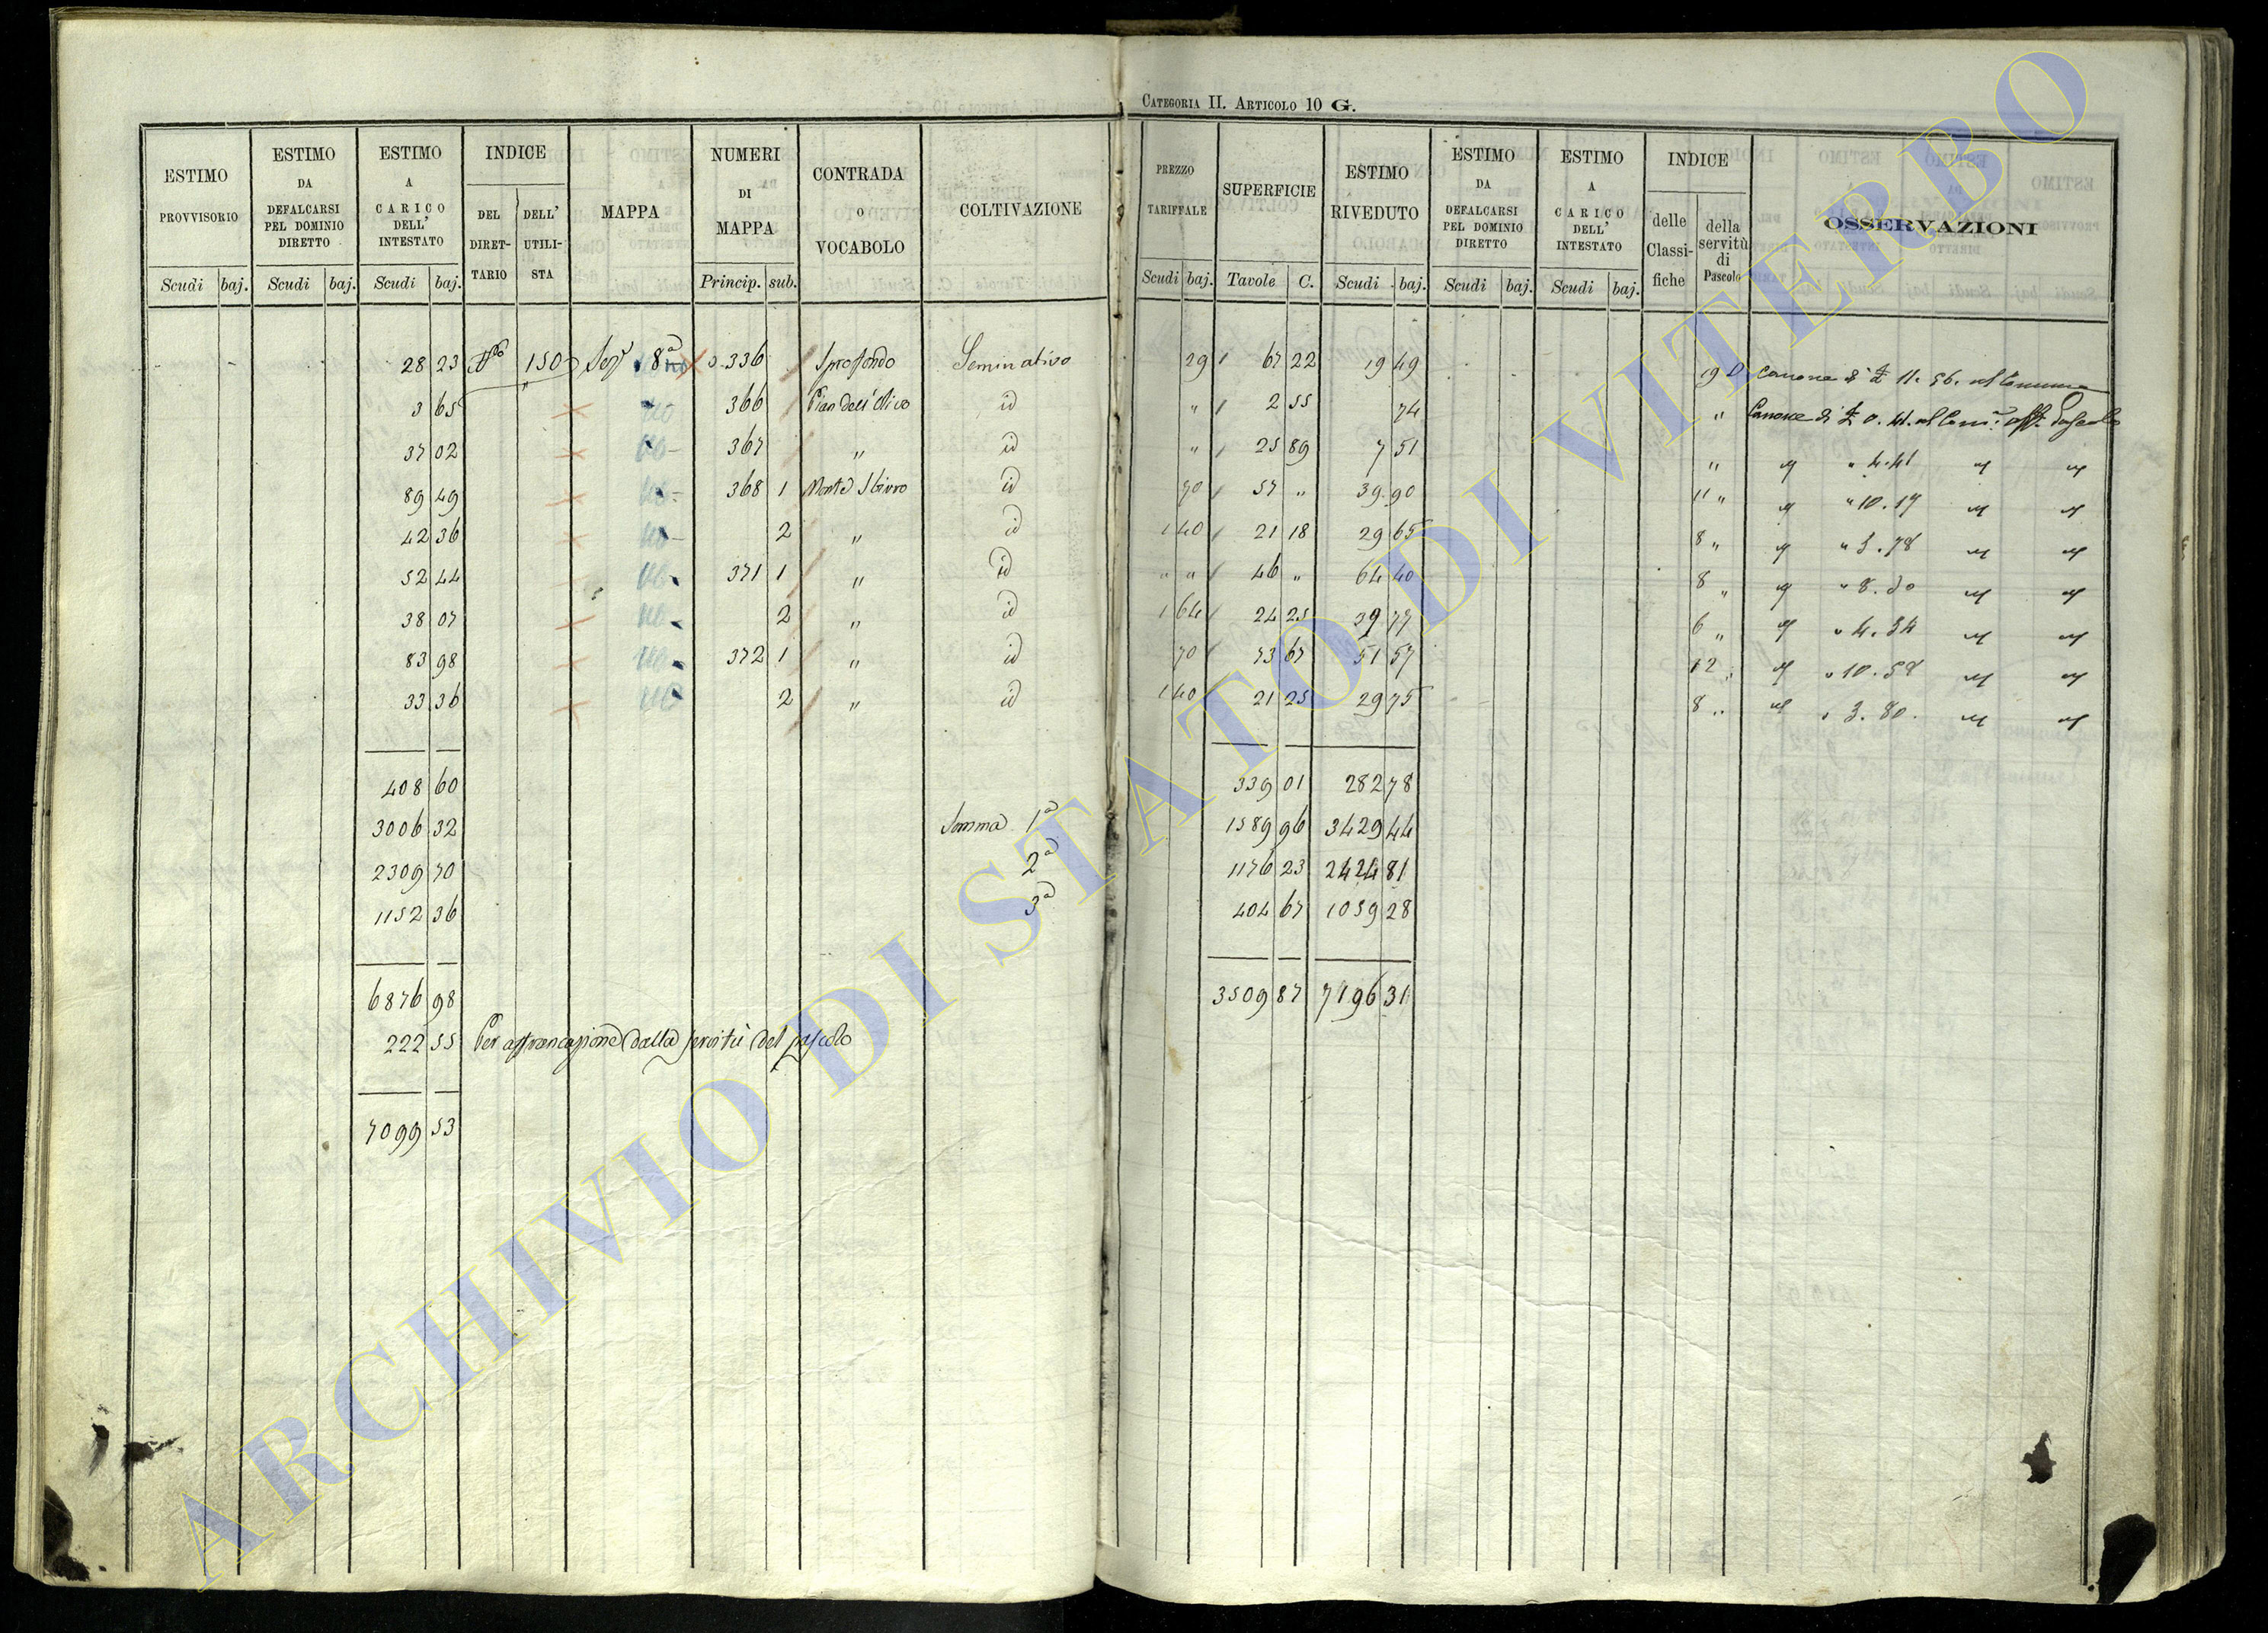 CATEGORIA II. ARTICOLO 10 G.
ESTIMO PROVVISORIO Scudi baj.
ESTIMO DA DEFALCARSI PEL DOMINIO DIRETTO Scudi baj.
ESTIMO A CARICO DELL' INTESTATO Scudi baj.
INDICE DEL DIRET- TARIO DELL' UTILI- STA
MAPPA
NUMERI DI MAPPA Princip. sub.
CONTRADA O VOCABOLO
COLTIVAZIONE
PREZZO TARIFFALE Scudi baj.
SUPERFICIE Tavole C.
ESTIMO RIVEDUTO Scudi baj.
ESTIMO DA DEFALCARSI PEL DOMINIO DIRETTO Scudi baj.
ESTIMO A CARICO DELL' INTESTATO Scudi baj.
INDICE delle Classi- fiche della servitù di Pascolo
OSSERVAZIONI
28 23 150 Sez. 8ª 336 Sprofondo Seminativo 29 67 22 19 49 19 D Canone di 11. 56. al Comune
3 65 366 Pian dell'Olivo id " 2 55 74 " Canone di 0. 41. al Com. aff. Pascolo
37 02 367 " id " 25 89 7 51 " " 4.41
89 49 368 1 Monte Sbirro id 70 57 " 39 90 11 " " 10.17
42 36 2 " id 1 40 21 18 29 65 8 " " 3.78
52 44 371 1 " id " " 46 " 64 40 8 " " 8.
38 07 2 " id 1 64 24 25 39 77 6 " " 4.34
83 98 372 1 " id 70 73 67 51 57 12 " " 10.
33 36 2 " id 1 40 21 25 29 75 8 " " 3.80.
408 60 339 01 282 78
3006 32 Somma 1ª 1589 96 3429 44
2309 70 2ª 1176 23 2424 81
1152 36 3ª 404 67 1059 28
6876 98 3509 87 7196 31
222 55 Per affrancazione dalla servitù del pascolo
7099 53
ARCHIVIO DI STATO DI VITERBO